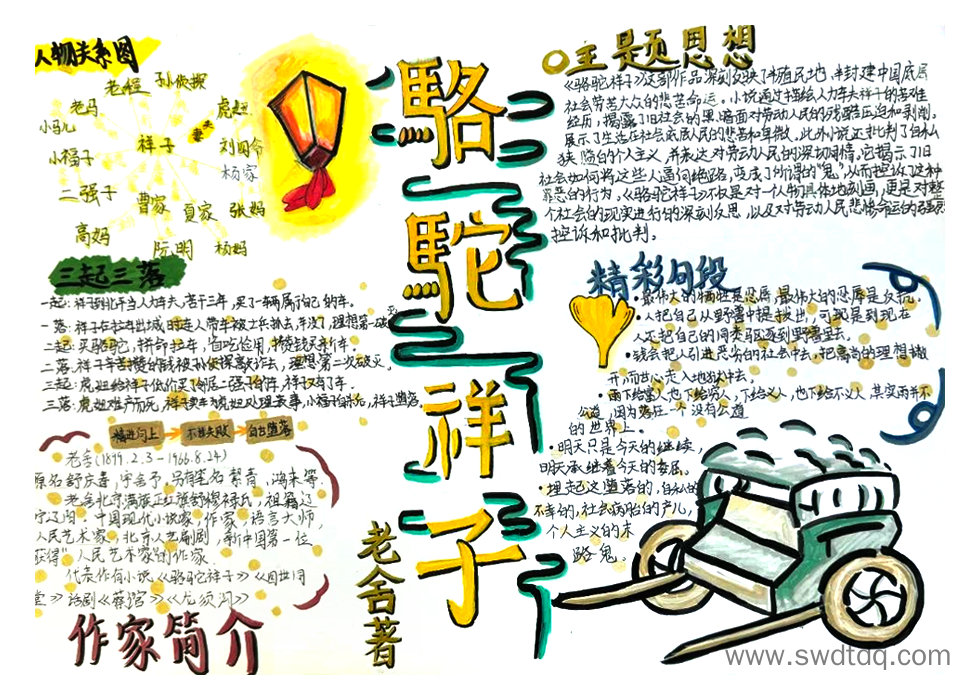 人物关系图
老程
孙侦探
老马
虎妞
小马儿
妻夫
祥子
刘四爷
小福子
杨家
二强子
曹家
夏家
张妈
高妈
阮明
杨妈
三起三落
一起：祥子到北平当人力车夫，苦干三年，买了一辆属于自己的车。
一落：祥子在拉车出城时连人带车被士兵抓去，车没了，理想第一破灭
二起：买骆驼，拼命拉车，省吃俭用，攒钱买新车。
二落：祥子辛苦攒的钱被孙侦探骗抄去，理想第二次破灭。
三起：虎妞给祥子低价买了邻居二强子的车，祥子又有了车。
三落：虎妞难产而死，祥子卖车为虎妞处理丧事，小福子的死，祥子堕落
精进向上
不甘失败
自甘堕落
老舍（1899.2.3-1966.8.24）
原名舒庆春，字舍予，另有笔名絜青、鸿来等
老舍北京满族正红旗舒穆禄氏，祖籍辽
宁辽阳，中国现代小说家，作家，语言大师，
人民艺术家，北京人艺剧，新中国第一位
获得“人民艺术家”的作家
代表作有小说《骆驼祥子》《四世同
堂》话剧《茶馆》《龙须沟》
作家简介
駱駝祥子
老舍著
主题思想
《骆驼祥子》这部作品深刻反映了半殖民地，半封建中国底层
社会劳苦大众的悲苦命运。小说通过描绘人力车夫祥子的苦难
经历，揭露了旧社会的黑暗面对劳动人民的残酷压迫和剥削，
展示了生活在社会底层人民的悲苦和卑微，此外小说还批判了自私
狭隘的个人主义，并表达对劳动人民的深切同情，它揭示了旧
社会如何将这些人逼向绝路，变成了所谓的“鬼”，从而控诉了这种
罪恶的行为，《骆驼祥子》不仅是对一人物具体地刻画，更是对整
个社会的现实进行的深刻反思，以及对劳动人民悲惨命运的强烈
控诉和批判。
精彩句段
最伟大的牺牲是忍辱，最伟大的忍辱是反抗。
人把自己从野兽中提拔出，可那是到现在
人还把自己的同类驱逐到野兽里去
钱会把人引进恶劣的社会中去，把高尚的理想撇
开，而甘心走入地狱中去。
雨下给富人，也下给穷人，下给义人，也下给不义人，其实雨并不
公道，因为落在一个没有公道
的世界上。
明天只是今天的继续，
明天承继着今天的委屈。
埋起这堕落的，自私的
不幸的，社会病胎的产儿，
个人主义的末
路鬼。
www.swdtdq.com